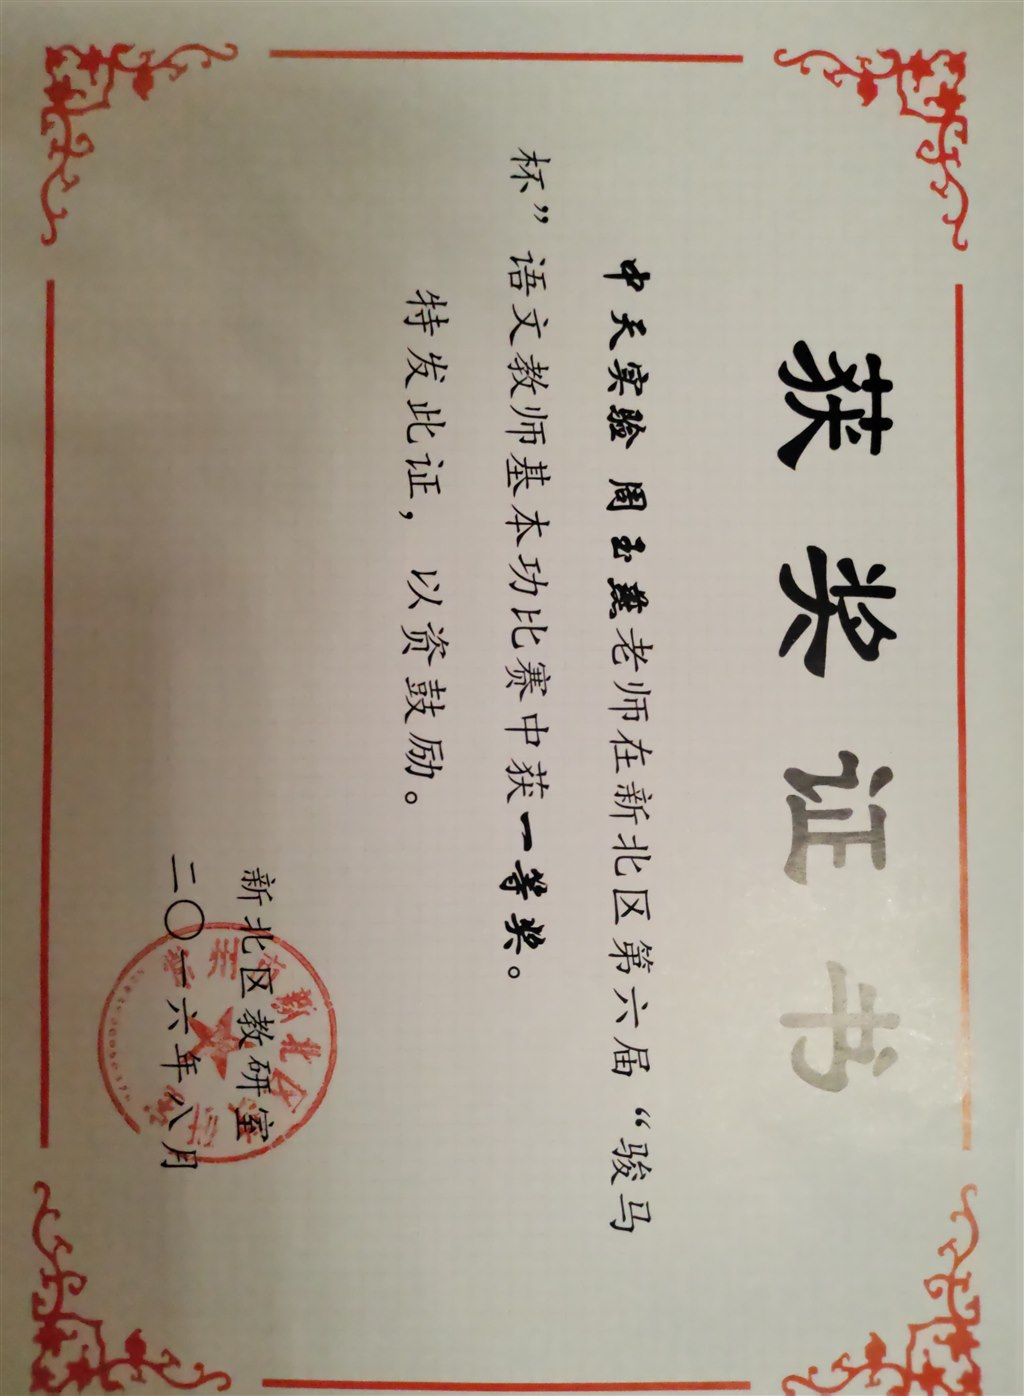 获奖证书
中天实验 周玉燕老师在新北区第六届“骏马
杯”语文教师基本功比赛中获一等奖。
特发此证，以资鼓励。
新北区教研室
二〇一六年八月